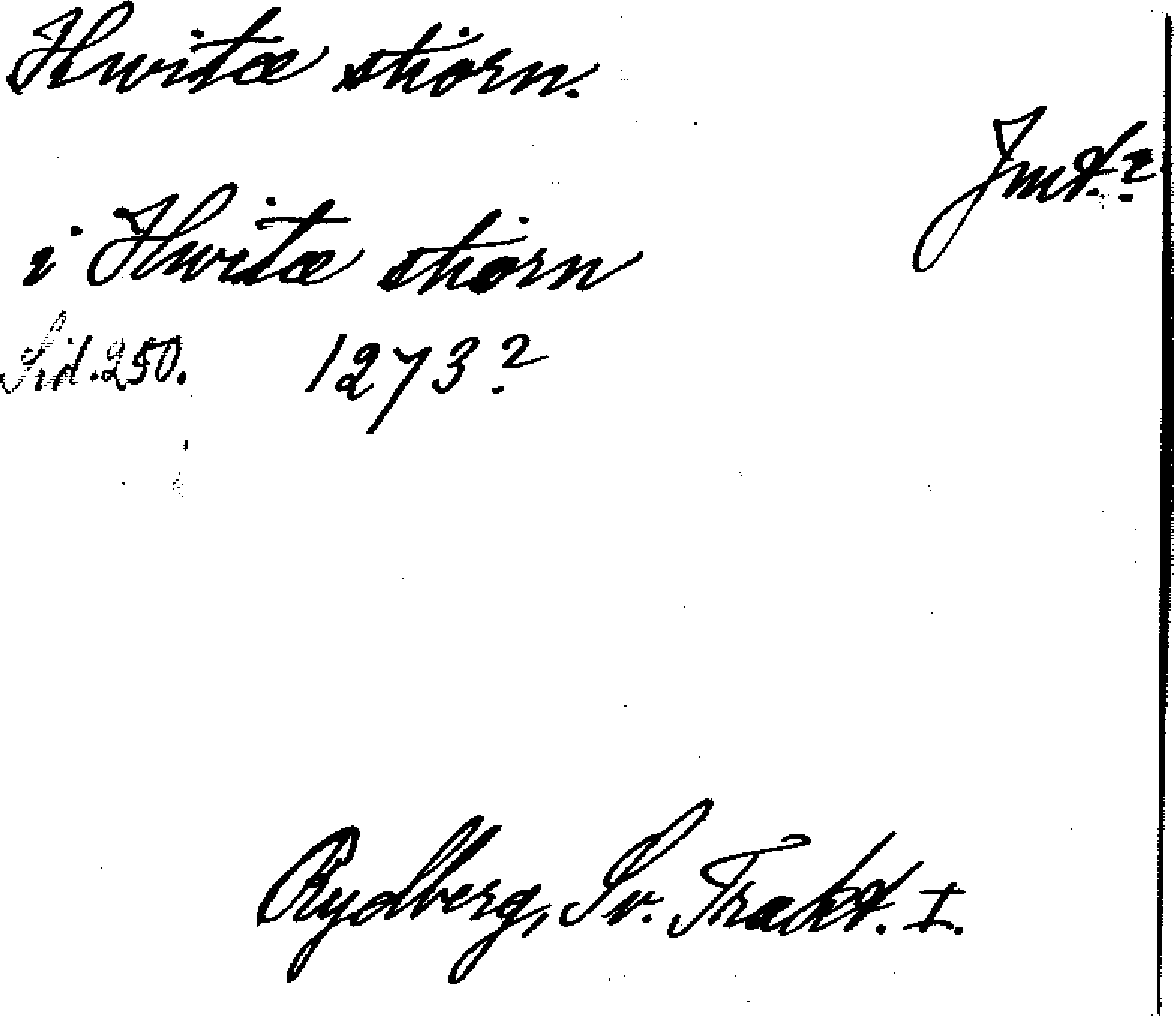 Hwitæ stiørn.
Jmt.?
i Hwitæ stiørn
Sid. 250. 1273?
Rydberg, Sv. Trakt. I.